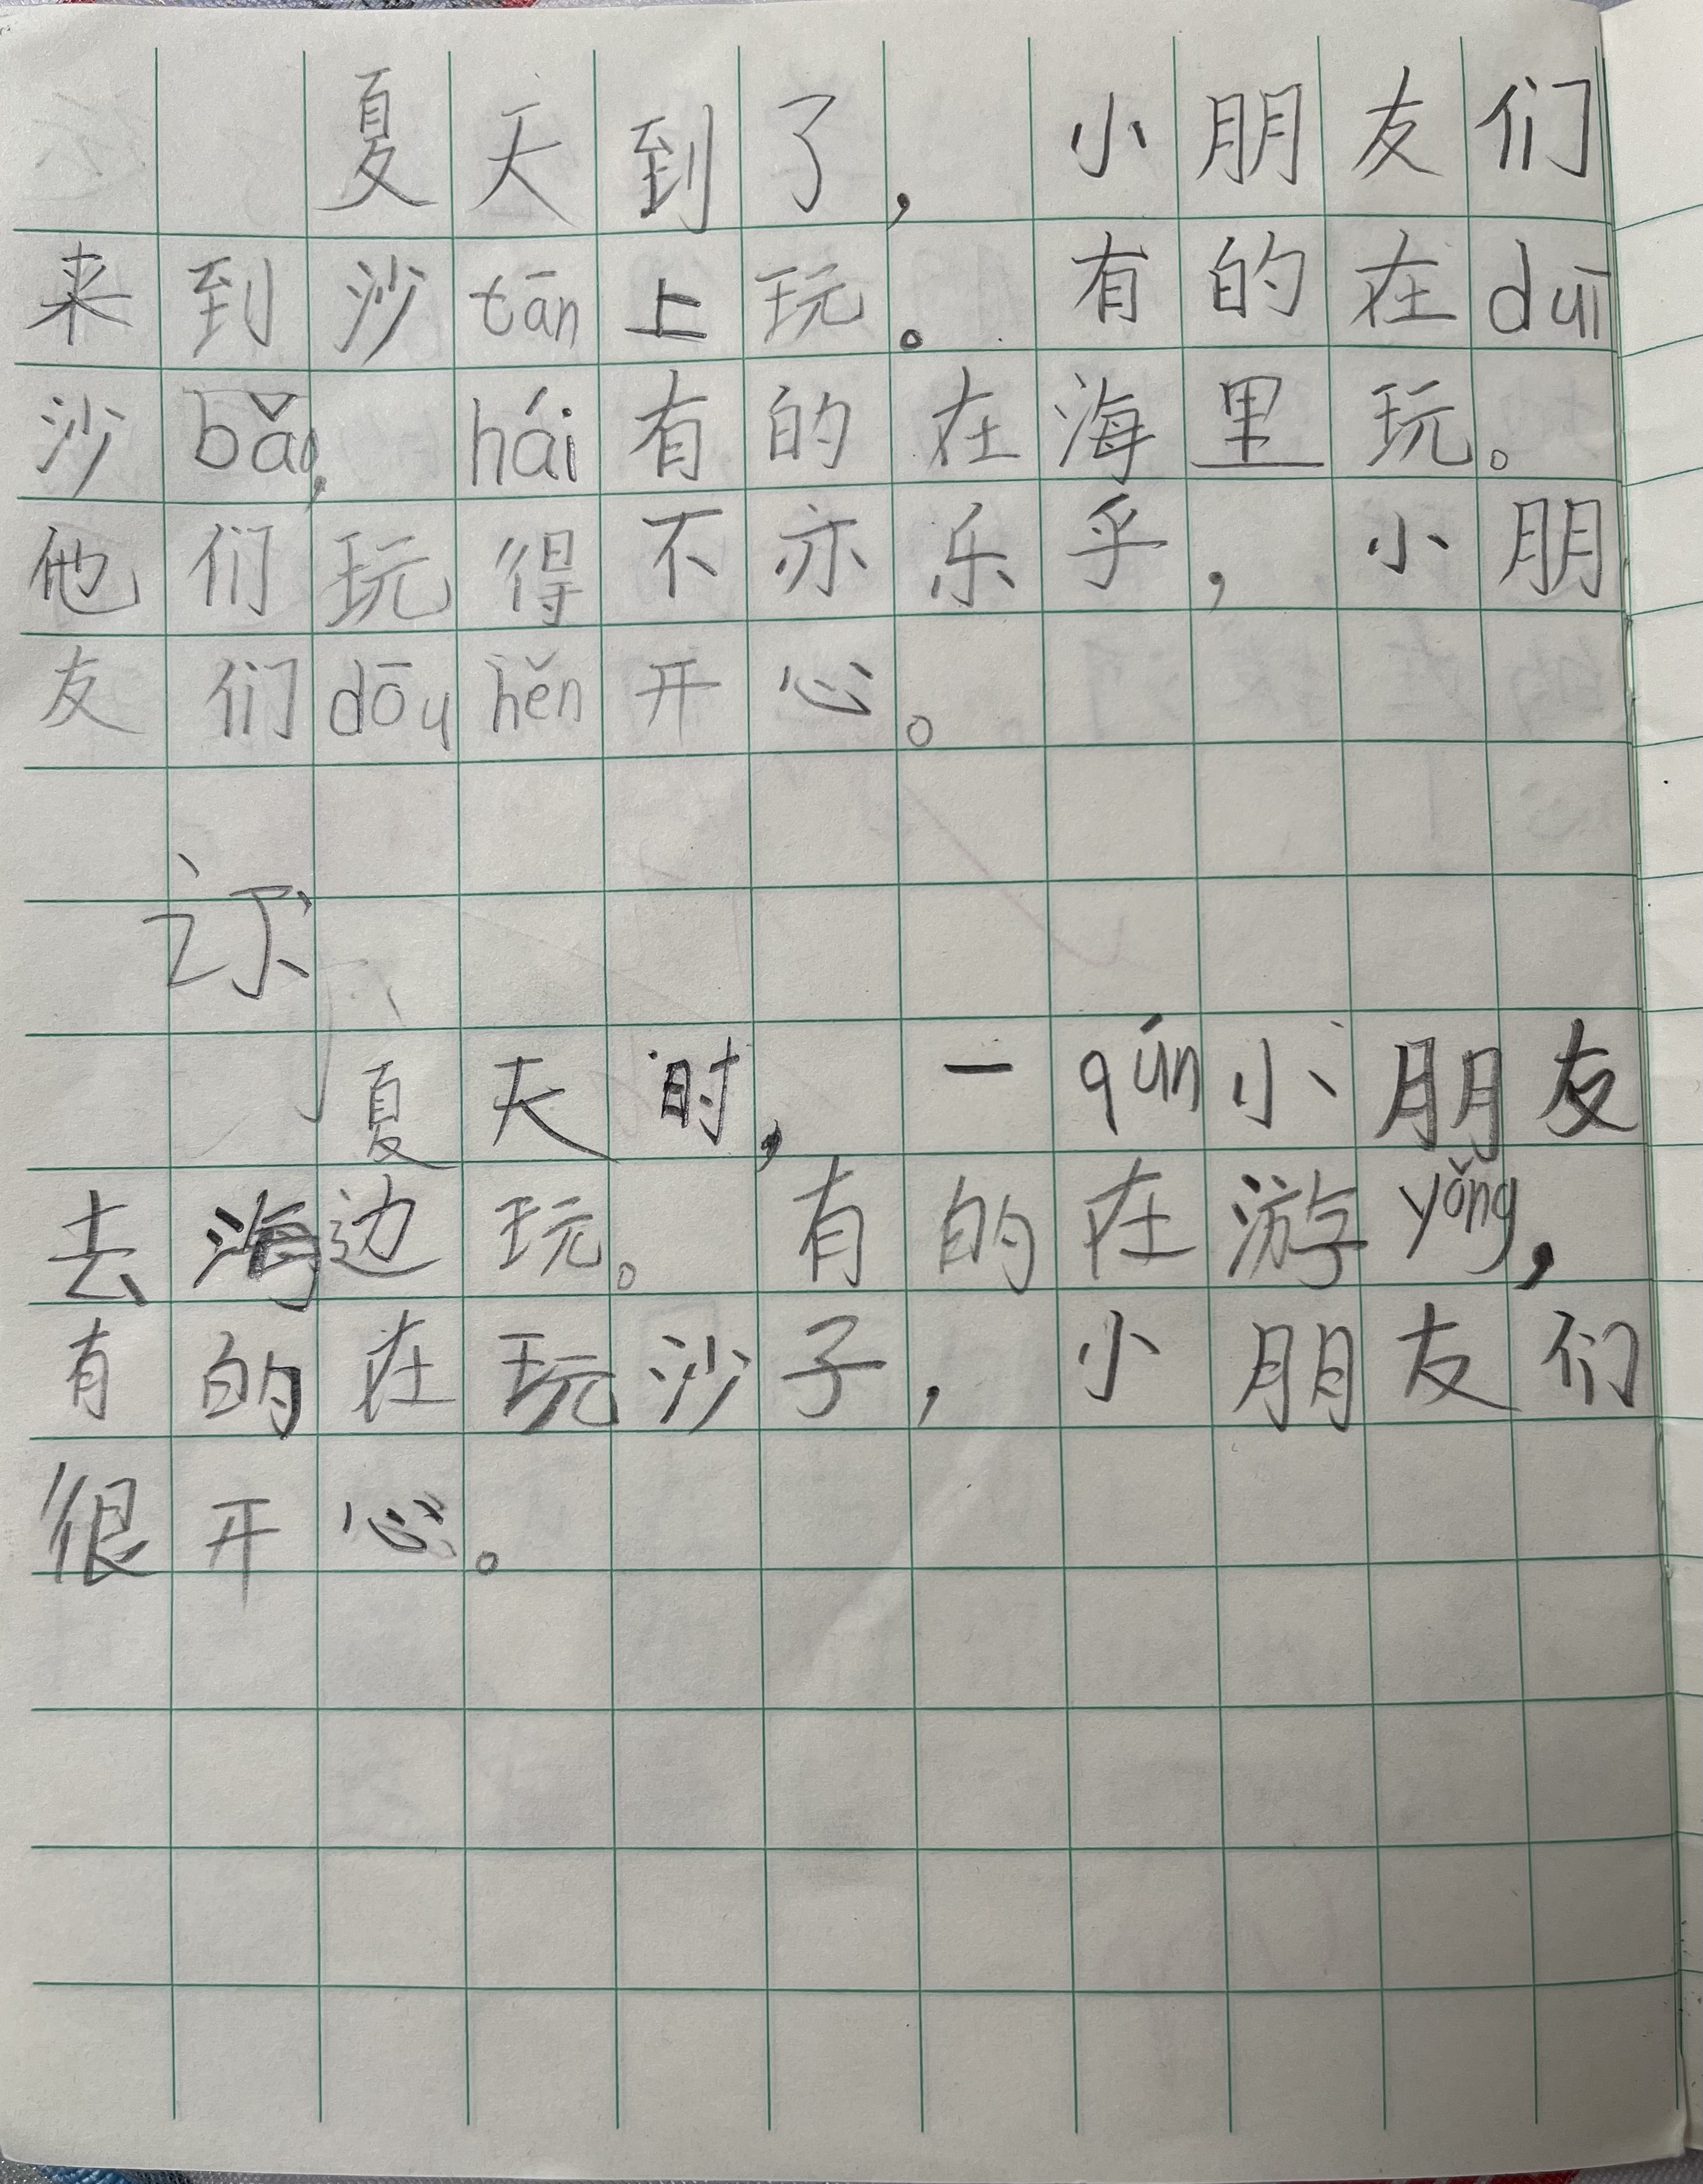 夏天到了，小朋友们
来到沙tān上玩。有的在duī
沙bǎo，hái有的在海里玩。
他们玩得不亦乐乎，小朋
友们dōuhěn开心。
夏天时，一qún小朋友
去海边玩。有的在游yǒng，
有的在玩沙子，小朋友们
很开心。